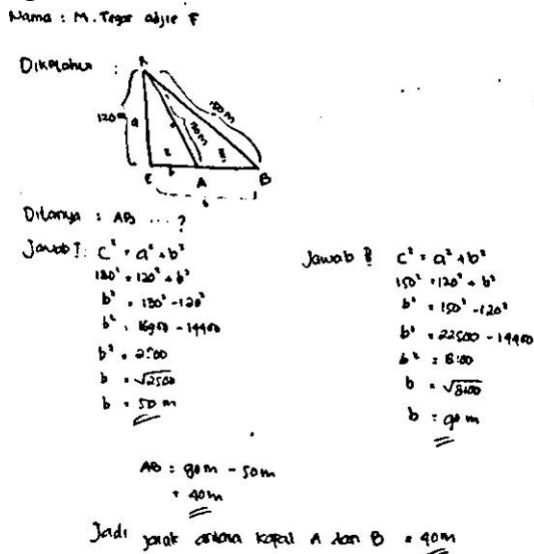 Nama : M. Tegar adjie F
Diketahui :
K
120 m a
130 m
150 m
E b A B
b
Ditanya : AB ... ?
Jawab I : c² = a² + b²
130² = 120² + b²
b² = 130² - 120²
b² = 16900 - 14400
b² = 2500
b = √2500
b = 50 m
Jawab c² = a² + b²
150² = 120² + b²
b² = 150² - 120²
b² = 22500 - 14400
b² = 8100
b = √8100
b = 90 m
AB = 90 m - 50 m
= 40 m
Jadi jarak antara kapal A dan B = 40 m